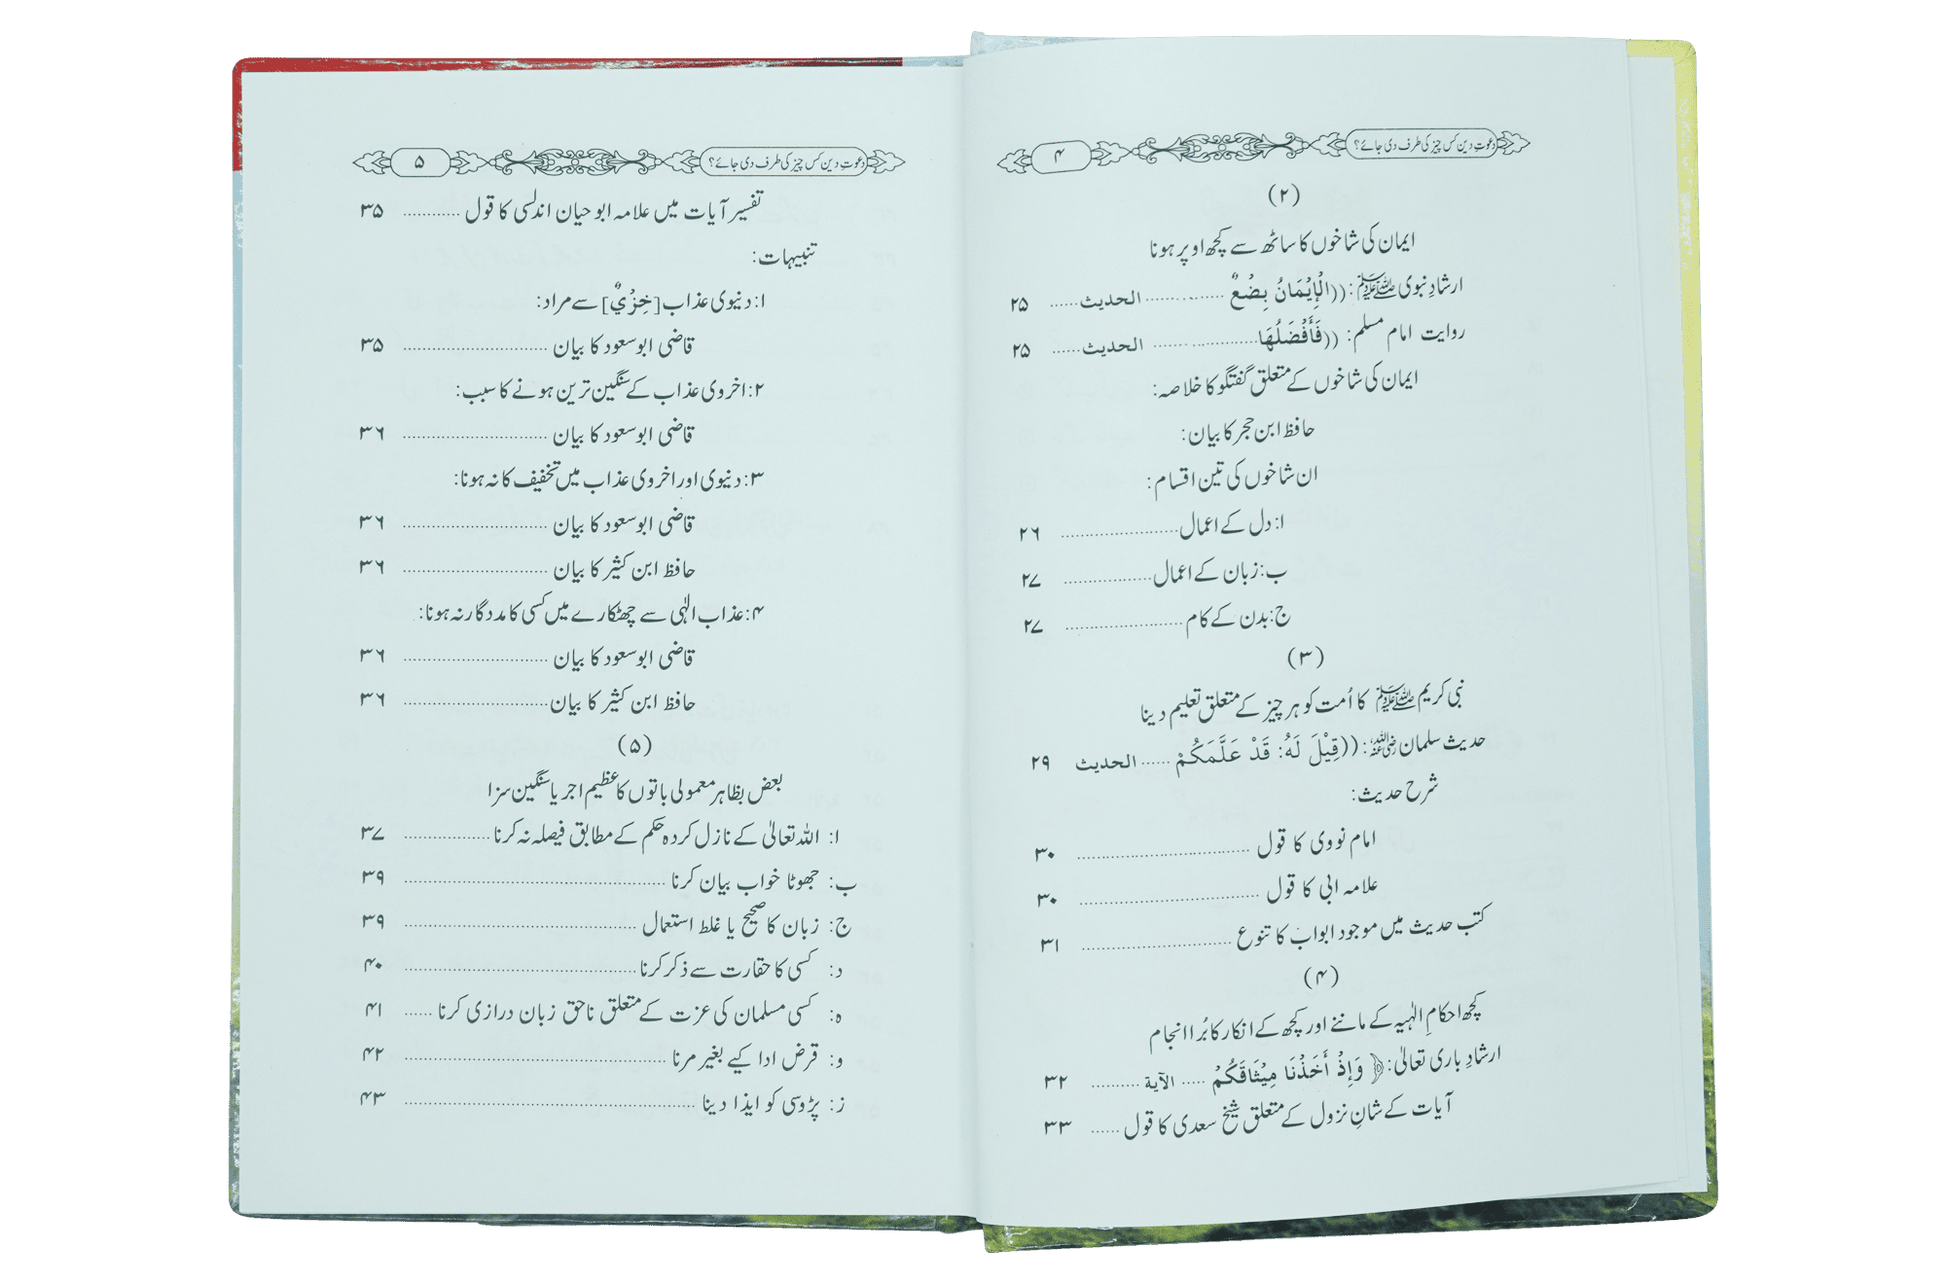 دعوتِ دین کس چیز کی طرف دی جائے؟ ۴
(۲)
ایمان کی شاخوں کا ساٹھ سے کچھ اوپر ہونا
ارشادِ نبوی ﷺ: ((الْإِيْمَانُ بِضْعٌ ............ الحديث ...... ۲۵
روایت امام مسلم: ((فَأَفْضَلُهَا ............ الحديث ...... ۲۵
ایمان کی شاخوں کے متعلق گفتگو کا خلاصہ:
حافظ ابن حجر کا بیان:
ان شاخوں کی تین اقسام:
ا: دل کے اعمال ............ ۲۶
ب: زبان کے اعمال ............ ۲۷
ج: بدن کے کام ............ ۲۷
(۳)
نبی کریم ﷺ کا اُمت کو ہر چیز کے متعلق تعلیم دینا
حدیث سلمان رضی اللہ عنہ: ((قِيْلَ لَهُ: قَدْ عَلَّمَكُمْ ...... الحديث ۲۹
شرح حدیث:
امام نووی کا قول ............ ۳۰
علامہ ابی کا قول ............ ۳۰
کتب حدیث میں موجود ابواب کا تنوع ............ ۳۱
(۴)
کچھ احکامِ الٰہیہ کے ماننے اور کچھ کے انکار کا بُرا انجام
ارشادِ باری تعالیٰ: ﴿وَإِذْ أَخَذْنَا مِيْثَاقَكُمْ ..... الآية .......... ۳۲
آیات کے شانِ نزول کے متعلق شیخ سعدی کا قول ...... ۳۳
دعوتِ دین کس چیز کی طرف دی جائے؟ ۵
تفسیر آیات میں علامہ ابو حیان اندلسی کا قول ............ ۳۵
تنبیہات:
ا: دنیوی عذاب [خِزْيٌ] سے مراد:
قاضی ابو سعود کا بیان ............ ۳۵
۲: اخروی عذاب کے سنگین ترین ہونے کا سبب:
قاضی ابو سعود کا بیان ............ ۳۶
۳: دنیوی اور اخروی عذاب میں تخفیف کا نہ ہونا:
قاضی ابو سعود کا بیان ............ ۳۶
حافظ ابن کثیر کا بیان ............ ۳۶
۴: عذاب الٰہی سے چھٹکارے میں کسی کا مددگار نہ ہونا:
قاضی ابو سعود کا بیان ............ ۳۶
حافظ ابن کثیر کا بیان ............ ۳۶
(۵)
بعض بظاہر معمولی باتوں کا عظیم اجر یا سنگین سزا
ا: اللہ تعالیٰ کے نازل کردہ حکم کے مطابق فیصلہ نہ کرنا ............ ۳۷
ب: جھوٹا خواب بیان کرنا ............ ۳۹
ج: زبان کا صحیح یا غلط استعمال ............ ۳۹
د: کسی کا حقارت سے ذکر کرنا ............ ۴۰
ہ: کسی مسلمان کی عزت کے متعلق ناحق زبان درازی کرنا ...... ۴۱
و: قرض ادا کیے بغیر مرنا ............ ۴۲
ز: پڑوسی کو ایذا دینا ............ ۴۳